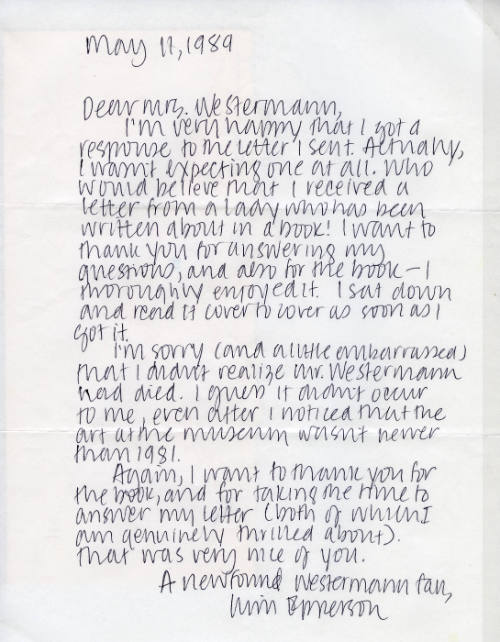 May 11, 1989
Dear Mrs. Westermann,
I'm very happy that I got a
response to the letter I sent. Actually,
I wasn't expecting one at all. Who
would believe that I received a
letter from a lady who has been
written about in a book! I want to
thank you for answering my
questions, and also for the book – I
thoroughly enjoyed it. I sat down
and read it cover to cover as soon as I
got it.
I'm sorry (and a little embarrassed)
that I didn't realize Mr. Westermann
had died. I guess it didn't occur
to me, even after I noticed that the
art at the museum wasn't newer
than 1981.
Again, I want to thank you for
the book, and for taking the time to
answer my letter (both of which I
am genuinely thrilled about).
That was very nice of you.
A newfound Westermann fan,
Epperson